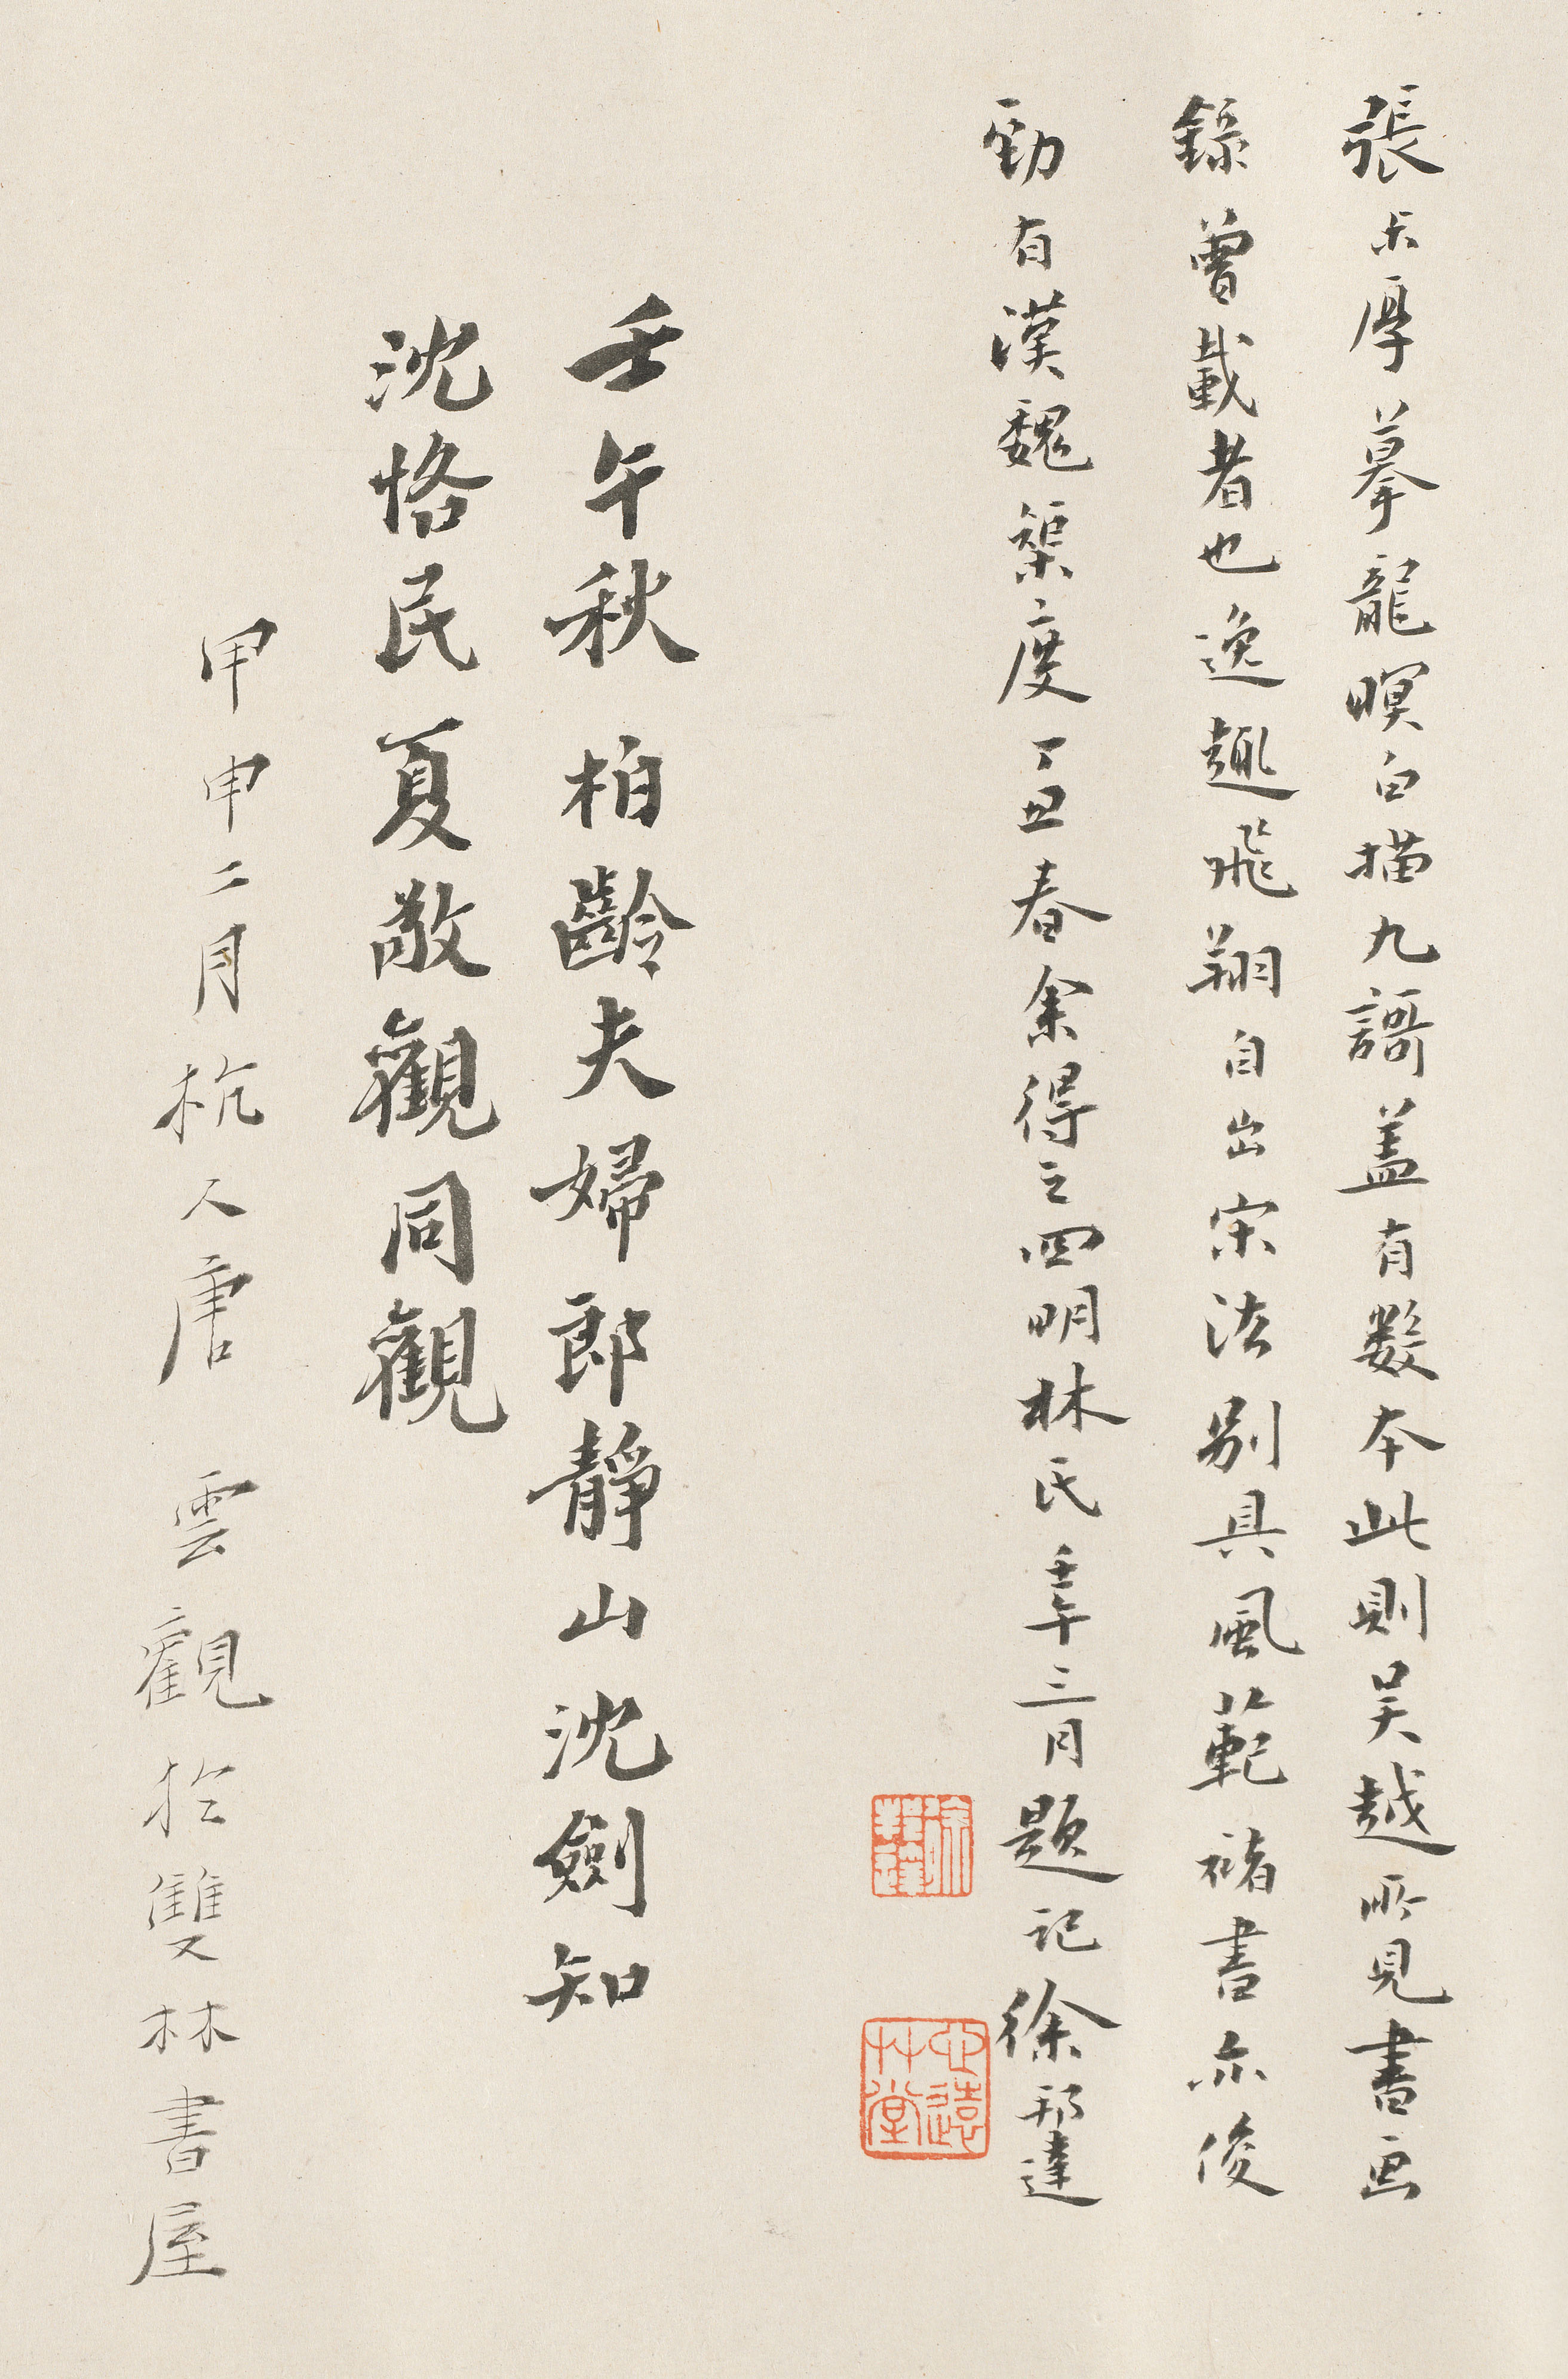 張尗厚摹龍暝白描九謌盖有數本此則吴越所見書画
錄曾載者也逸趣飛翔自出宋法别具風範褚書亦俊
勁有漢魏榘度丁丑春余得之四明林氏壬午三月題記徐邦達
心遠草堂
壬午秋柏齡夫婦郎靜山沈劍知
沈恪民夏敬觀同觀
甲申二月杭人唐雲觀於雙林書屋